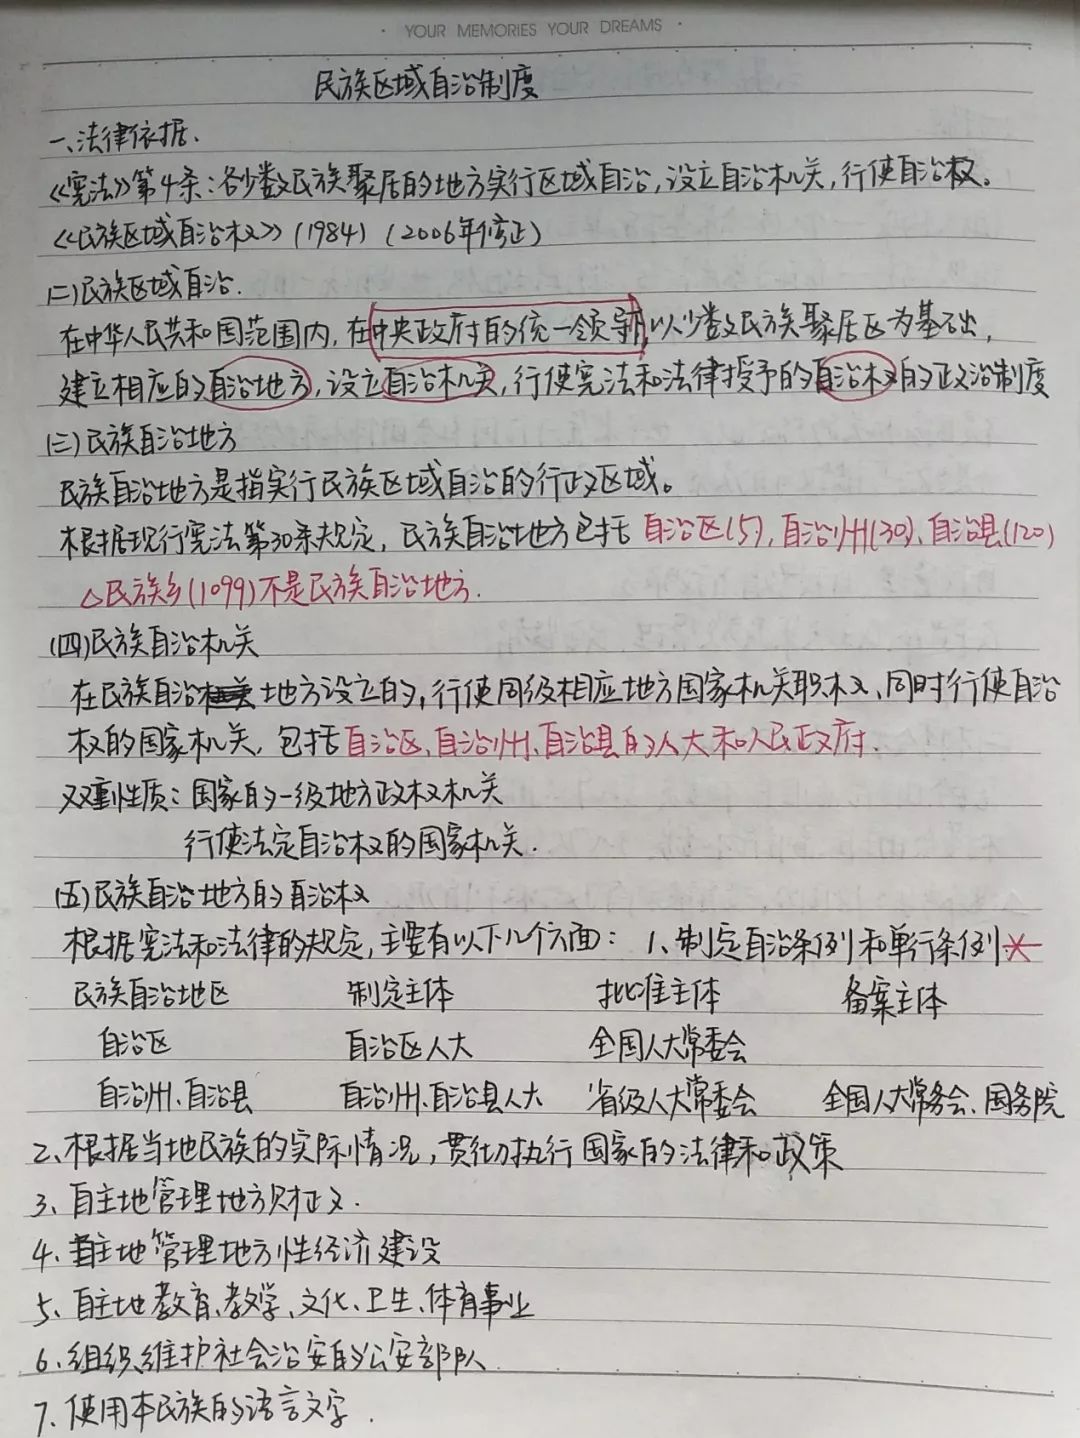 · YOUR MEMORIES YOUR DREAMS ·
民族区域自治制度
一、法律依据.
《宪法》第4条：各少数民族聚居的地方实行区域自治,设立自治机关,行使自治权。
《民族区域自治权》(1984)（2006年修正）
(二)民族区域自治.
在中华人民共和国范围内,在中央政府的统一领导,以少数民族聚居区为基础,
建立相应的自治地方,设立自治机关,行使宪法和法律授予的自治权的政治制度
(三)民族自治地方
民族自治地方是指实行民族区域自治的行政区域。
根据现行宪法第30条规定,民族自治地方包括 自治区(5),自治州(30)、自治县(120)
△民族乡(1099)不是民族自治地方.
(四)民族自治机关
在民族自治地方设立的,行使同级相应地方国家机关职权、同时行使自治
权的国家机关,包括自治区,自治州、自治县的人大和人民政府.
双重性质：国家的一级地方政权机关
行使法定自治权的国家机关.
(五)民族自治地方的自治权
根据宪法和法律的规定,主要有以下几个方面： 1、制定自治条例和单行条例
民族自治地区 制定主体 批准主体 备案主体
自治区 自治区人大 全国人大常委会
自治州、自治县 自治州、自治县人大 省级人大常委会 全国人大常务会、国务院
2、根据当地民族的实际情况,贯彻执行国家的法律和政策
3、自主地管理地方财政.
4、自主地管理地方性经济建设
5、自主地教育、教学、文化、卫生、体育事业
6、组织维护社会治安的公安部队
7、使用本民族的语言文字.